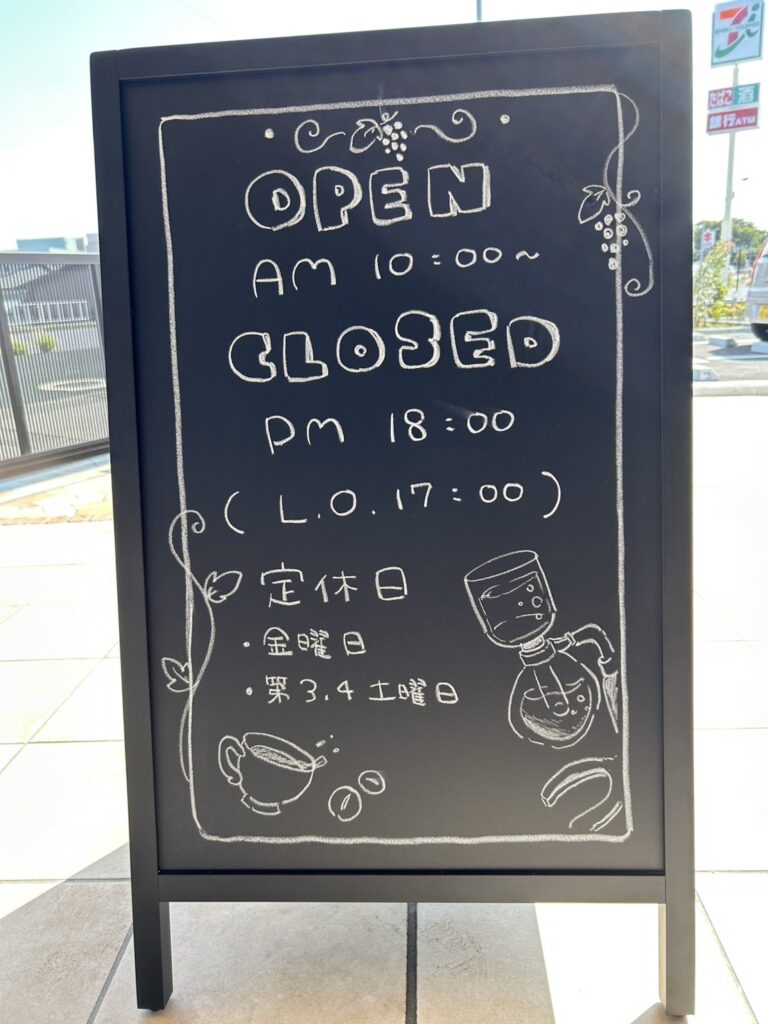 OPEN
AM 10:00~
CLOSED
PM 18:00
(L.O.17:00)
定休日
・金曜日
・第3.4土曜日
たばこ 酒
銀行ATM